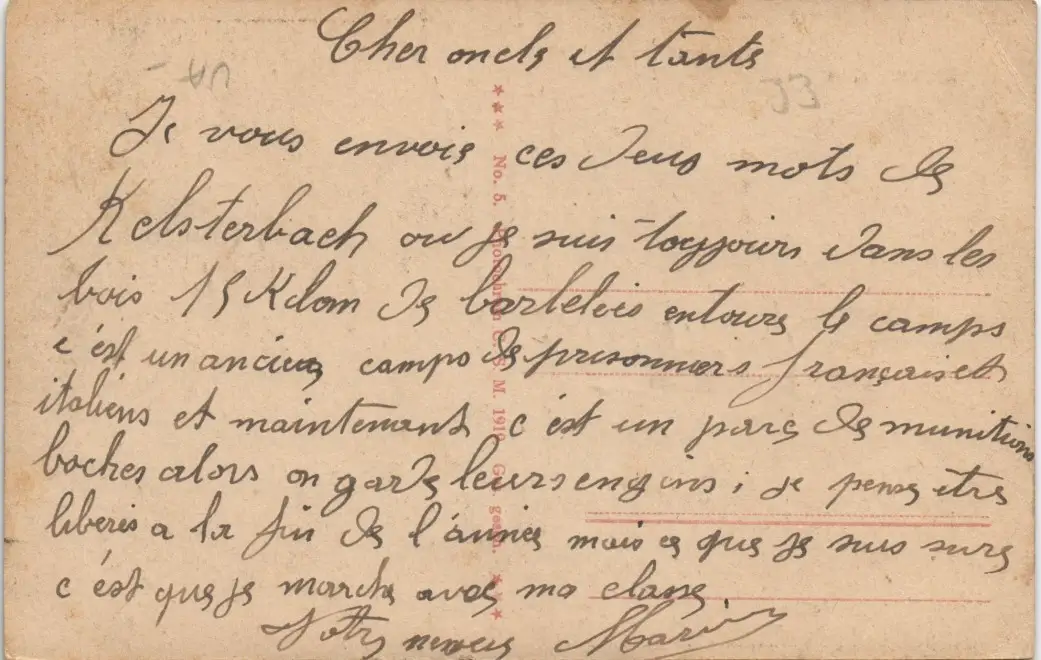 Cher oncle et tante
Je vous envois ces deus mots de
Kelsterbach ou je suis toujours dans les
bois 15 Kilom de barbeleis entoure le camps
c'est un ancien camps de prisonniers français et
italiens et maintenant c'est un parc de munitions
boches alors on garde leurs engins ; je pense etre
liberés a la fin de l'année mais ce que je suis sure
c'est que je marche avec ma classe
Votre neveus Marin
★★★ No. 5. S. M. 191 ★★★